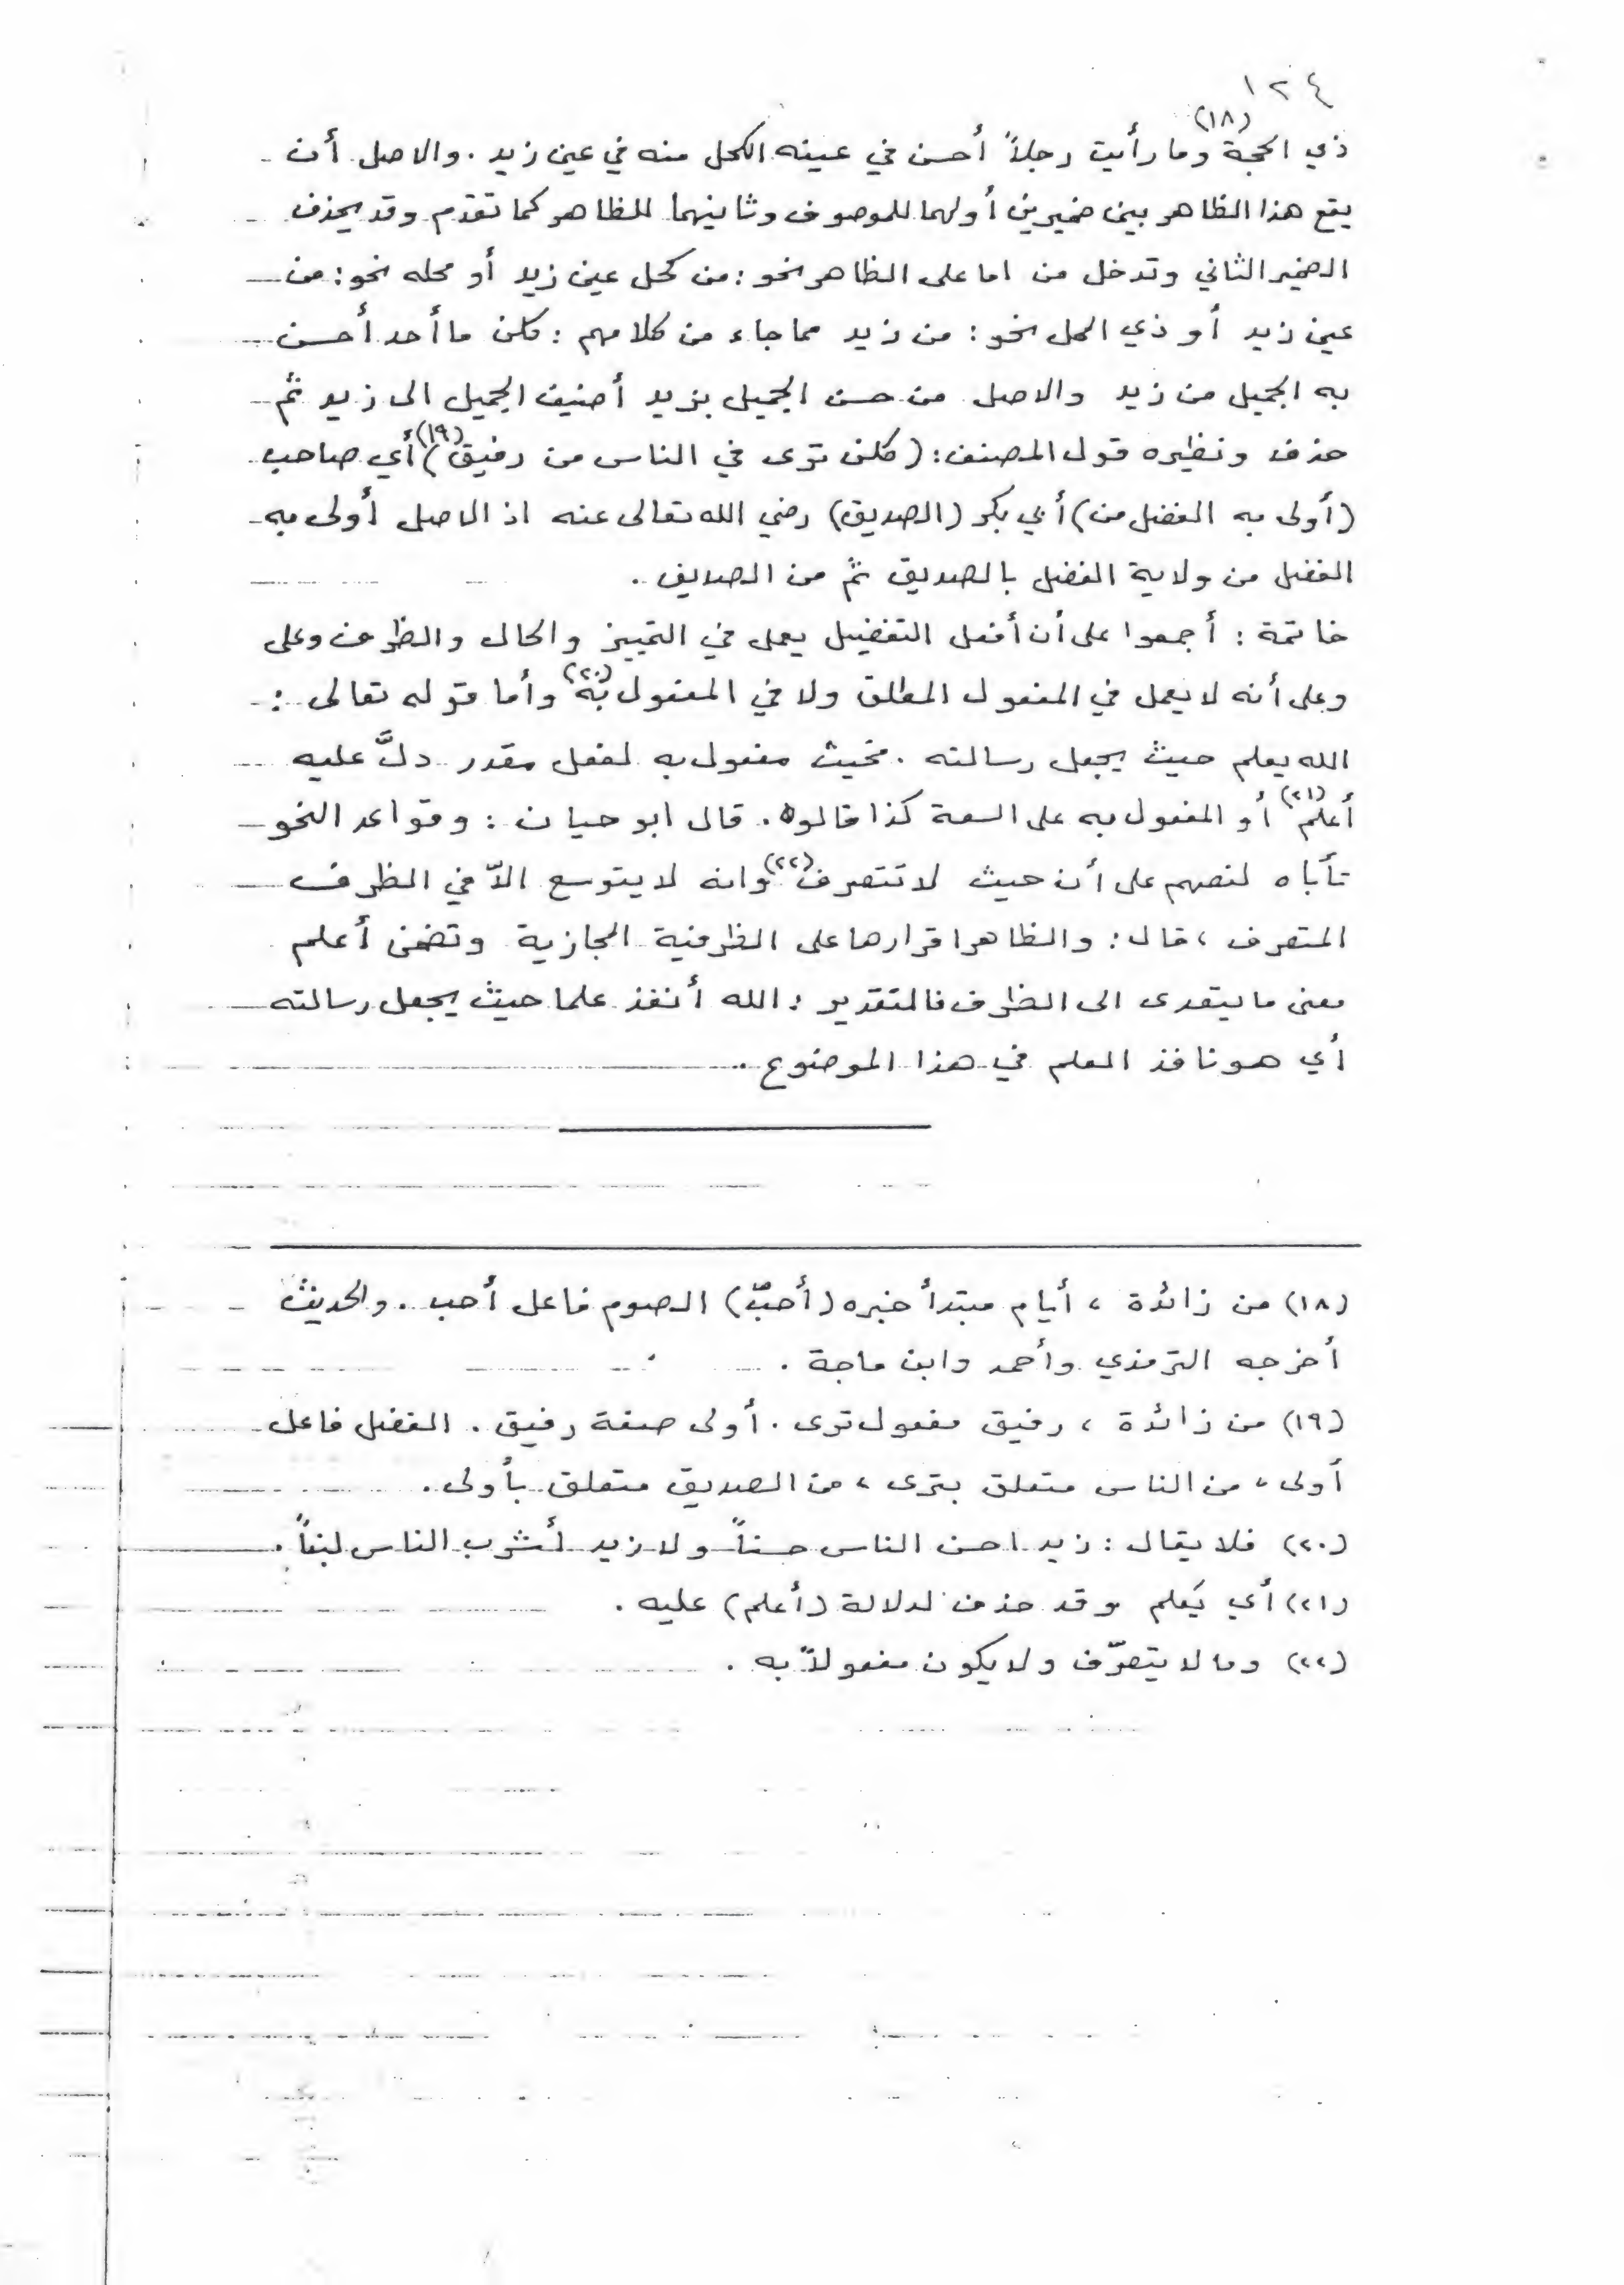 ١٢٤
ذي الحجة (١٨) وما رأيت رجلاً أحسن في عينه الكحل منه في عين زيد . والاصل أن
يقع هذا الظاهر بين ضميرين أولهما للموصوف وثانيهما للظاهر كما تقدم وقد يحذف
الضمير الثاني وتدخل من اما على الظاهر نحو : من كحل عين زيد أو محله نحو : من
عين زيد أو ذي المحل نحو : من زيد مما جاء من كلامهم : كلن ما أحد أحسن
به الجميل من زيد والاصل من حسن الجميل بزيد أضيف الجميل الى زيد ثمّ
حذف ونظيره قول المصنف : (كلن ترى في الناس من رفيق) (١٩) أي صاحب
(أولى به الفضل من) أبي بكر (الصديق) رضي الله تعالى عنه اذ الاصل أولى به
الفضل من ولاية الفضل بالصديق ثمّ من الصديق .
خاتمة : أجمعوا على أن أفعل التفضيل يعمل في التمييز والحال والظرف وعلى
وعلى أنه لا يعمل في المفعول المطلق ولا في المفعول به (٢٠) وأما قوله تعالى :
الله يعلم حيث يجعل رسالته . فحيث مفعول به لفعل مقدر دلَّ عليه
أعلم (٢١) أو المفعول به على السعة كذا قالوه . قال ابو حيان : وقواعد النحو
تأباه لنصهم على أن حيث لا تتصرف (٢٢) وانه لا يتوسع الاّ في الظرف
المتصرف ، قال : والظاهر اقرارها على الظرفية المجازية وتضمن أعلم
معنى ما يتعدى الى الظرف فالتقدير : الله أنفذ علما حيث يجعل رسالته
أي هو نافذ العلم في هذا الموضوع .
(١٨) من زائدة ، أيام مبتدأ خبره (أحبّ) الصوم فاعل أحب . والحديث
أخرجه الترمذي وأحمد وابن ماجة .
(١٩) من زائدة ، رفيق مفعول ترى . أولى صفة رفيق . الفضل فاعل
أولى ، من الناس متعلق بترى ، من الصديق متعلق بأولى .
(٢٠) فلا يقال : زيد احسن الناس حسناً ولا زيد أشرب الناس لبناً .
(٢١) أي يَعلم وقد حذف لدلالة (أعلم) عليه .
(٢٢) وما لا يتصرّف ولا يكون مفعولاً به .